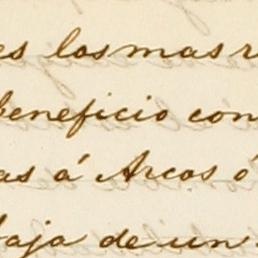 es los mas r
beneficio con
as á Arcos ó
baja de un